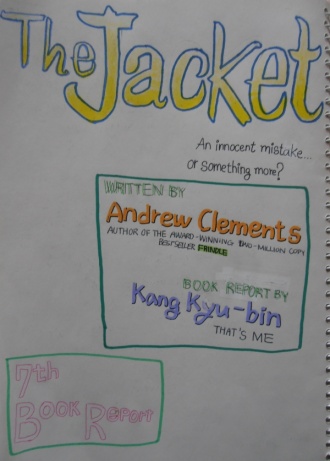 The Jacket
An innocent mistake...
or something more?
WRITTEN BY
Andrew Clements
AUTHOR OF THE AWARD-WINNING TWO-MILLION COPY
BESTSELLER FRINDLE
BOOK REPORT BY
Kang Kyu-bin
THAT'S ME
7th
BOOK REPORT